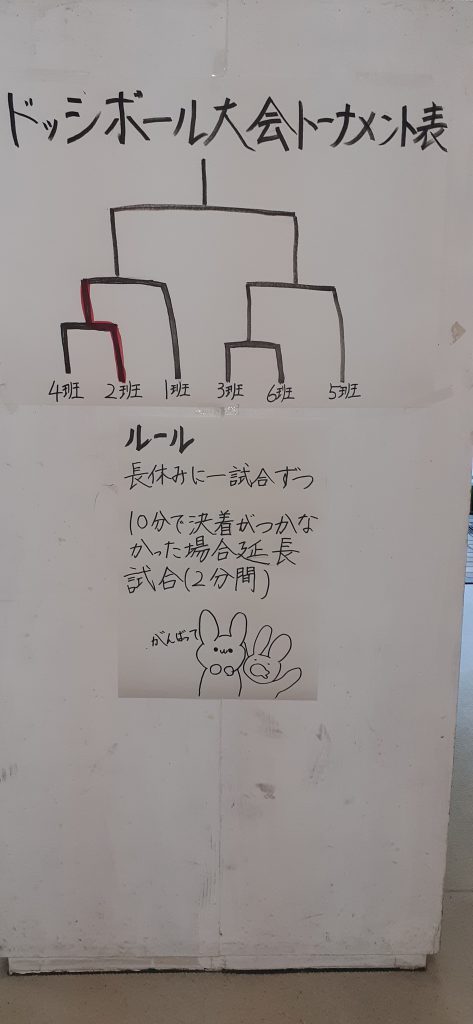 ドッジボール大会トーナメント表
4班 2班 1班 3班 6班 5班
ルール
長休みに一試合ずつ
10分で決着がつかな
かった場合延長
試合(2分間)
がんばって